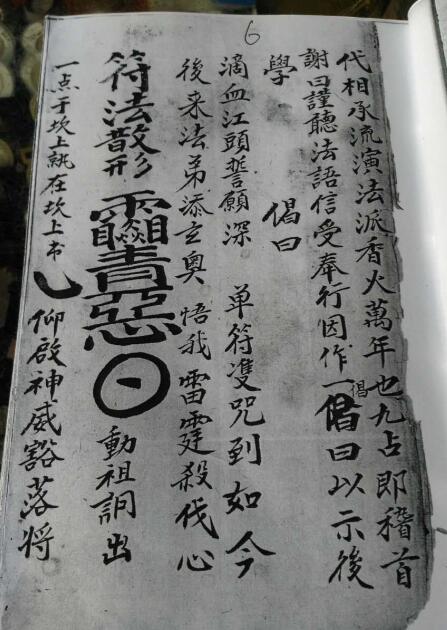 6
代相承流演法派香火萬年也九占即稽首
謝曰謹聽法語信受奉行因作一偈偈曰以示後
學 偈曰
滴血江頭誓願深 单符雙咒到如今
後来法弟添玄奥 悟我雷霆殺伐心
符法散形 青惡 動祖詞出
一点于坎上熟在坎上书 仰啟神威豁落将